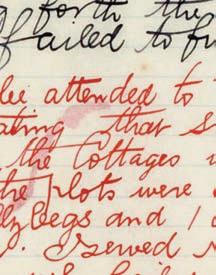 g forth the
failed to fu
lee attended to
ating that s
the Cottages
the plots were
llybegs and
. I served